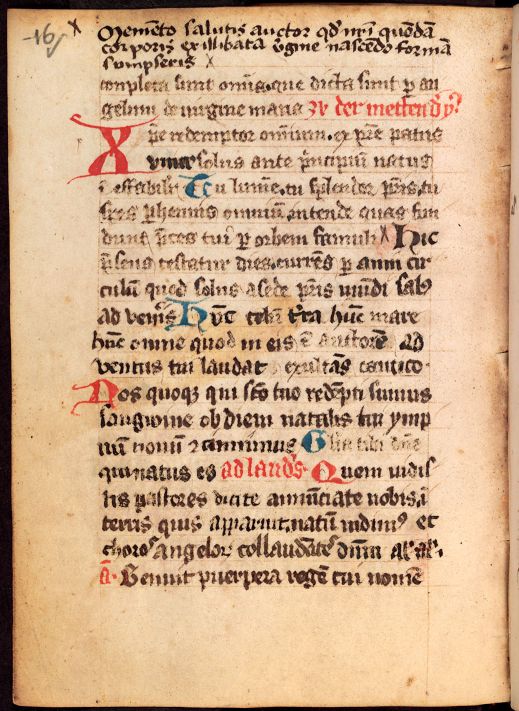 -16-
Memēto salutis auctor qd nr̄i quōdā
corporis ex illibata v̄gine nascēdo formā
sumpseris
completa sunt om̄ia que dicta sunt p an
gelum de virgine maria zu der metten dy
Xp̄e redemptor omnium ex pr̄e patris
vnice solus ante pͥncipiū natus
ī effabilit Tu lumē tu splendor pr̄is tu
spes phennis omniū intende quas fun
dunt p̄ces tui p orbem famuli Hic
p̄sens testatur dies currēs p anni cir
culū quod solus a sede pr̄is mūdi salꝰ
ad veneris Hūc celū tr̄ra hūc mare
hūc omne quod in eis ē auctorē ad
ventus tui laudat exultās cantico
Nos quoqꝫ qui scō tuo redēpti sumus
sangwine ob diem natalis tui ymp
nū nouū ⁊ cinnimus Glīa tibi dn̄e
qui natus es ad laudes Quem vidis
tis pastores dicite annūciate nobis ī
terris quis apparuit natū vidimꝰ et
choros angelor collaudātes dn̄m al al
a Genuit puerpera regē cui nomē